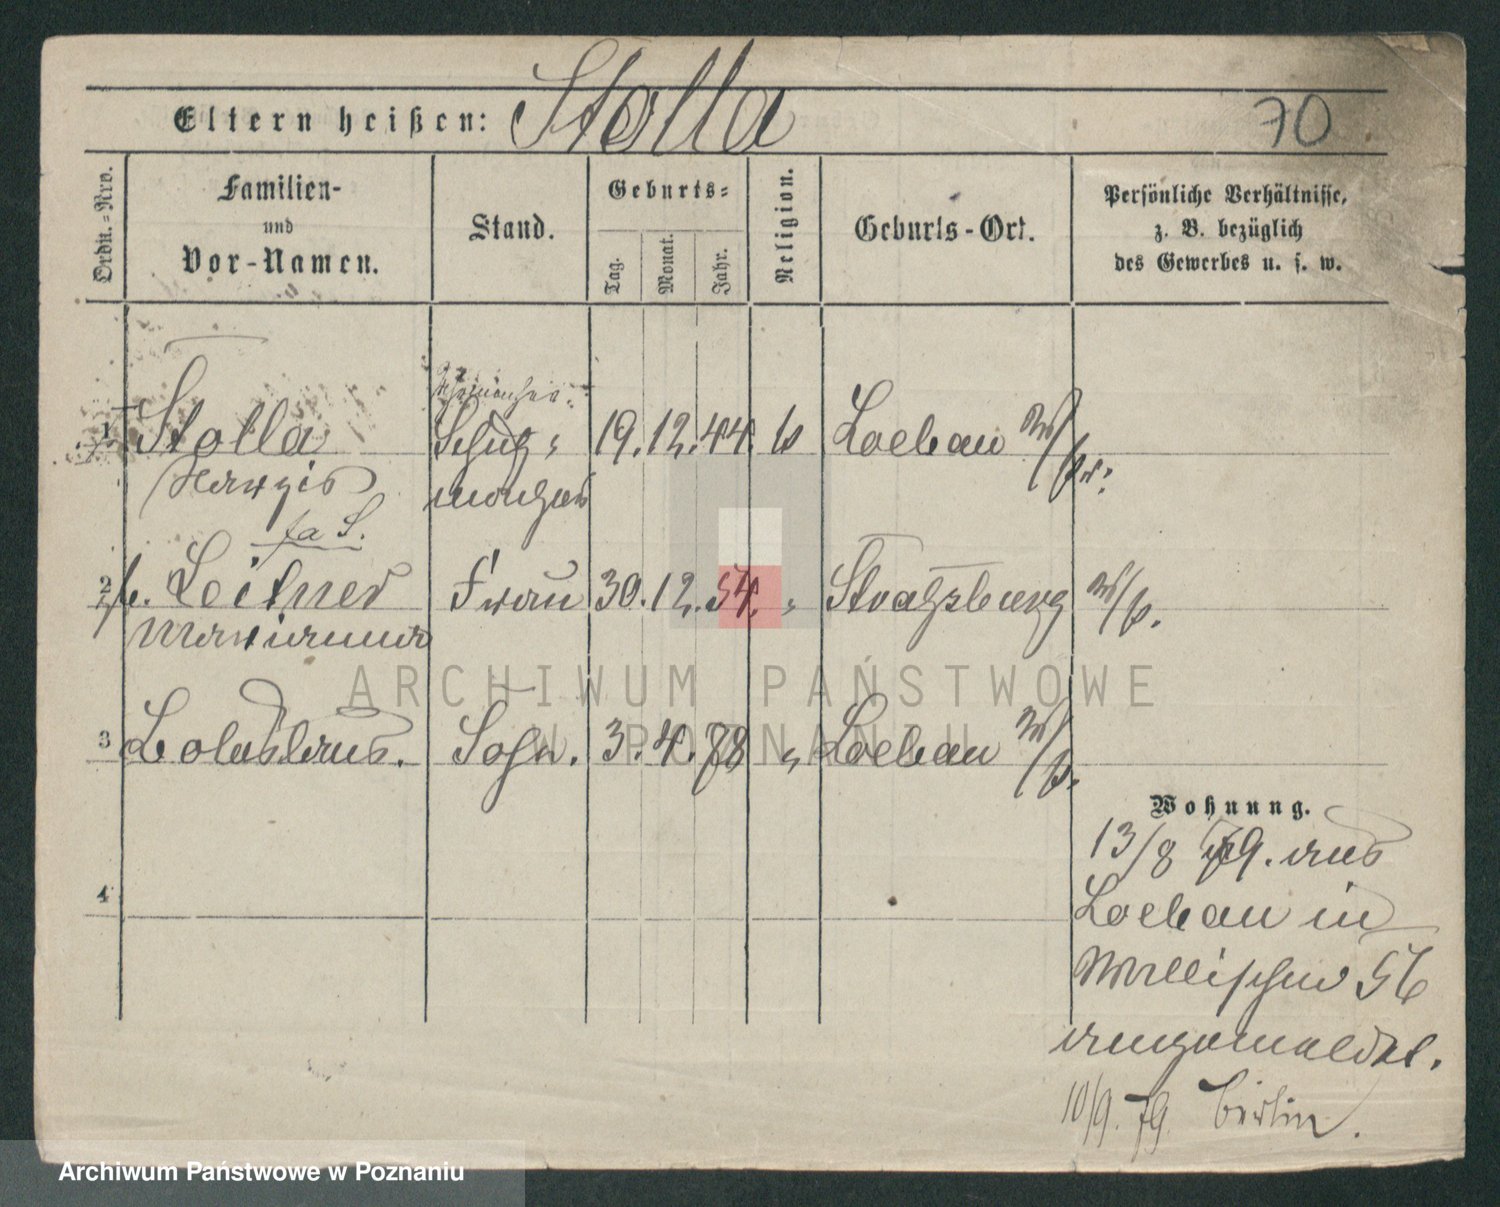 Eltern heißen: Stolla 70
Ordn.-Nro.
Familien-
und
Vor-Namen.
Stand.
Geburts-
Tag.
Monat.
Jahr.
Religion.
Geburts-Ort.
Persönliche Verhältnisse,
z. B. bezüglich
des Gewerbes u. s. w.
1 Stolla 19. 12. 44. k Loebau W/pr.
2 f. Leitner Frau 30. 12. 54. " Straszburg W/p.
Maryanna
3 Boleslaus. Sohn. 3. 4. 78 " Loebau W/p.
4
Wohnung.
13/8 79. aus
Loebau in
Wallischei 56
angemeldet.
10/9. 79. Berlin.
ARCHIWUM PAŃSTWOWE
W POZNANIU
Archiwum Państwowe w Poznaniu